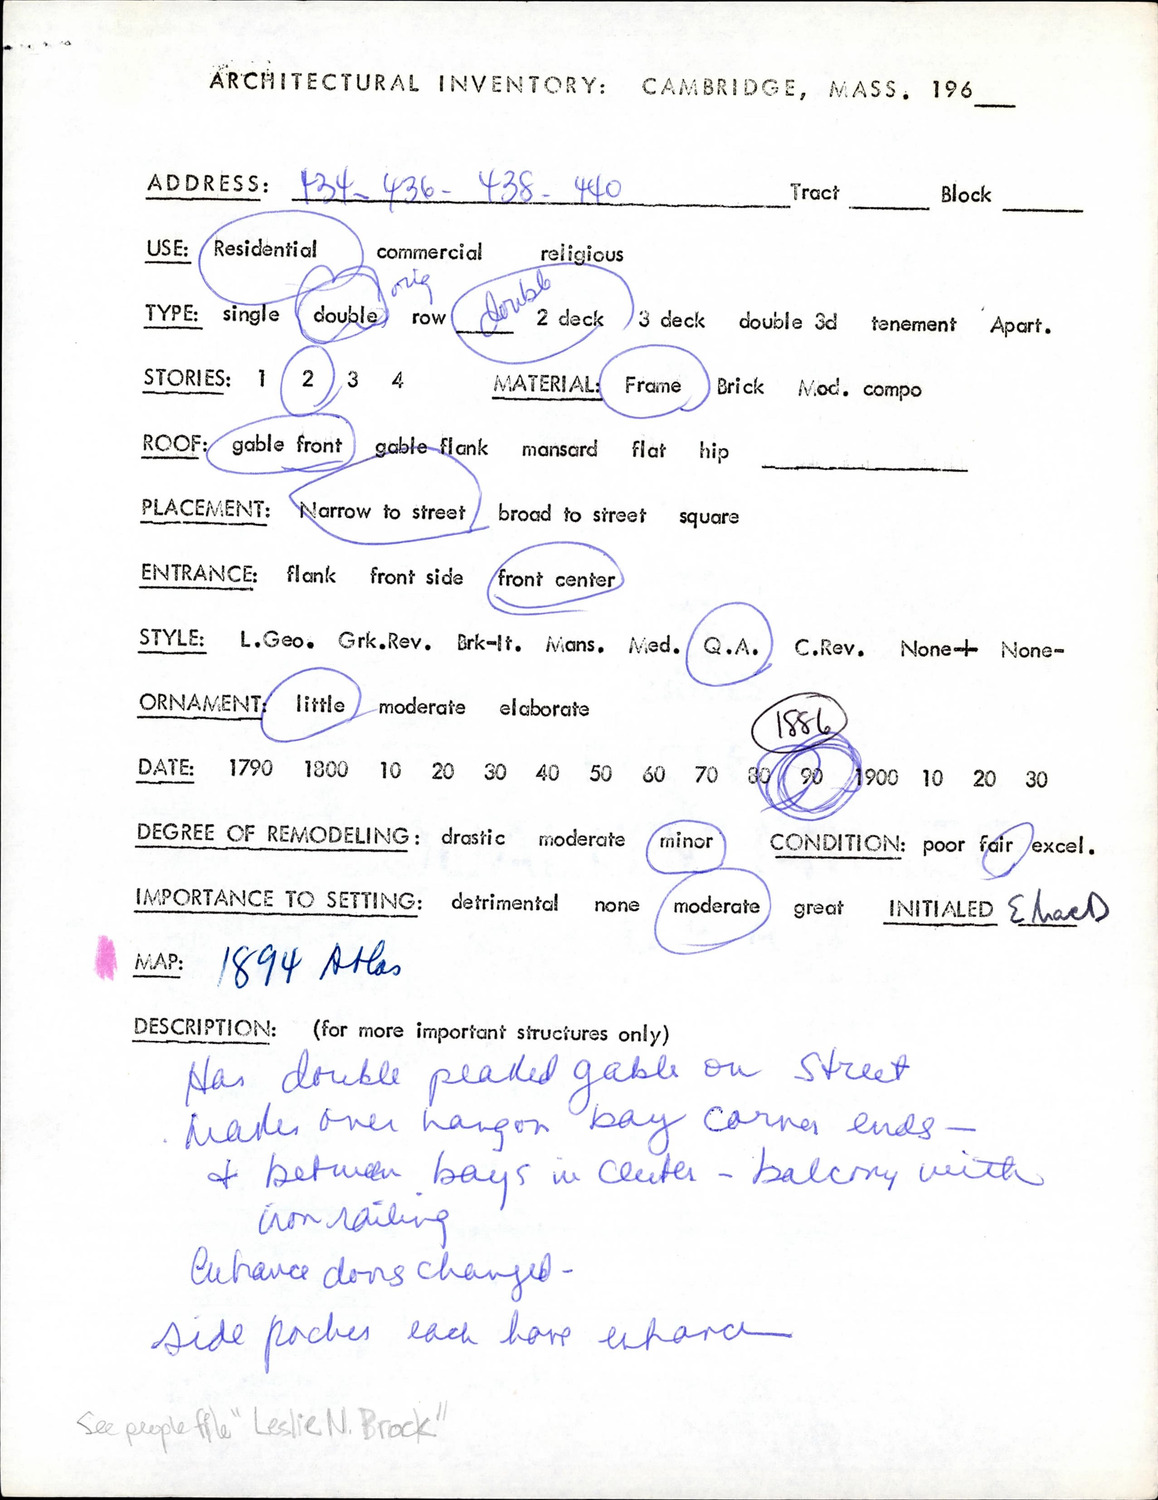 ARCHITECTURAL INVENTORY: CAMBRIDGE, MASS. 196__
ADDRESS: 434-436-438-440 Tract Block
USE: Residential commercial religious
orig
TYPE: single double row double 2 deck 3 deck double 3d tenement Apart.
STORIES: 1 2 3 4 MATERIAL: Frame Brick Mod. compo
ROOF: gable front gable flank mansard flat hip
PLACEMENT: Narrow to street broad to street square
ENTRANCE: flank front side front center
STYLE: L.Geo. Grk.Rev. Brk-It. Mans. Med. Q.A. C.Rev. None+ None-
ORNAMENT: little moderate elaborate
1886
DATE: 1790 1800 10 20 30 40 50 60 70 80 90 1900 10 20 30
DEGREE OF REMODELING: drastic moderate minor CONDITION: poor fair excel.
IMPORTANCE TO SETTING: detrimental none moderate great INITIALED
MAP: 1894 Atlas
DESCRIPTION: (for more important structures only)
Has double peaked gable on Street
Makes over hang on bay corner ends -
& between bays in center - balcony with
iron railing
Entrance doors changed -
side porches each have entrance
See people file "Leslie N. Brock"